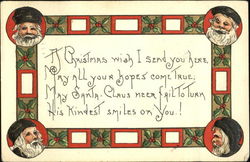 A Christmas wish I send you here,
May all your hopes come true;
May Santa Claus ne'er fail to turn
His kindest smiles on you!